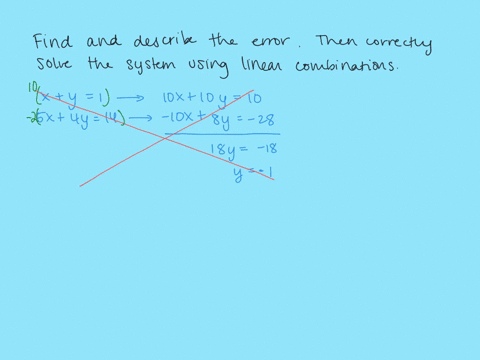 Find and describe the error. Then correctly
solve the system using linear combinations.
10(x + y = 1) → 10x + 10y = 10
-2(5x + 4y = 14) → -10x + 8y = -28
18y = -18
y = -1